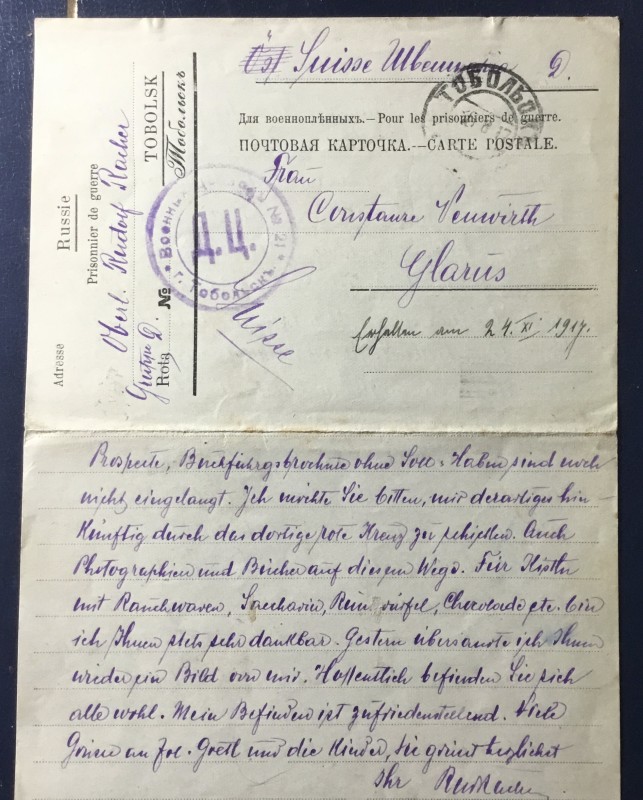 Suisse Швейцарія D.
ТОБОЛЬСК
Для военноплѣнныхъ.—Pour les prisonniers de guerre.
ПОЧТОВАЯ КАРТОЧКА.—CARTE POSTALE.
Frau
Constanze Neuwirth
Glarus
Suisse
Erhalten am 24. XI 1917.
Russie
Prisonnier de guerre
TOBOLSK
Тобольскъ
Adresse
Oberl. Rudolf
Gruppe D.
Rota
№
Д.Ц.
№ 21
г. Тобольскъ
Prospecte, ohne Soll = Haben sind noch
nicht eingelangt. Ich möchte Sie bitten, mir derartiges hin-
künftig durch das dortige rote Kreuz zu schicken. Auch
Photographien und Bücher auf diesem Wege. Für Kisten
mit Rauchwaren, Saccharin, Chocolade etc. bin
ich Ihnen stets sehr dankbar. Gestern übersandte ich Ihnen
wieder ein Bild von mir. Hoffentlich befinden Sie sich
alle wohl. Mein Befinden ist zufriedenstellend. Viele
Grüsse an Gretl und die Kinder, Sie grüsst herzlichst
Ihr